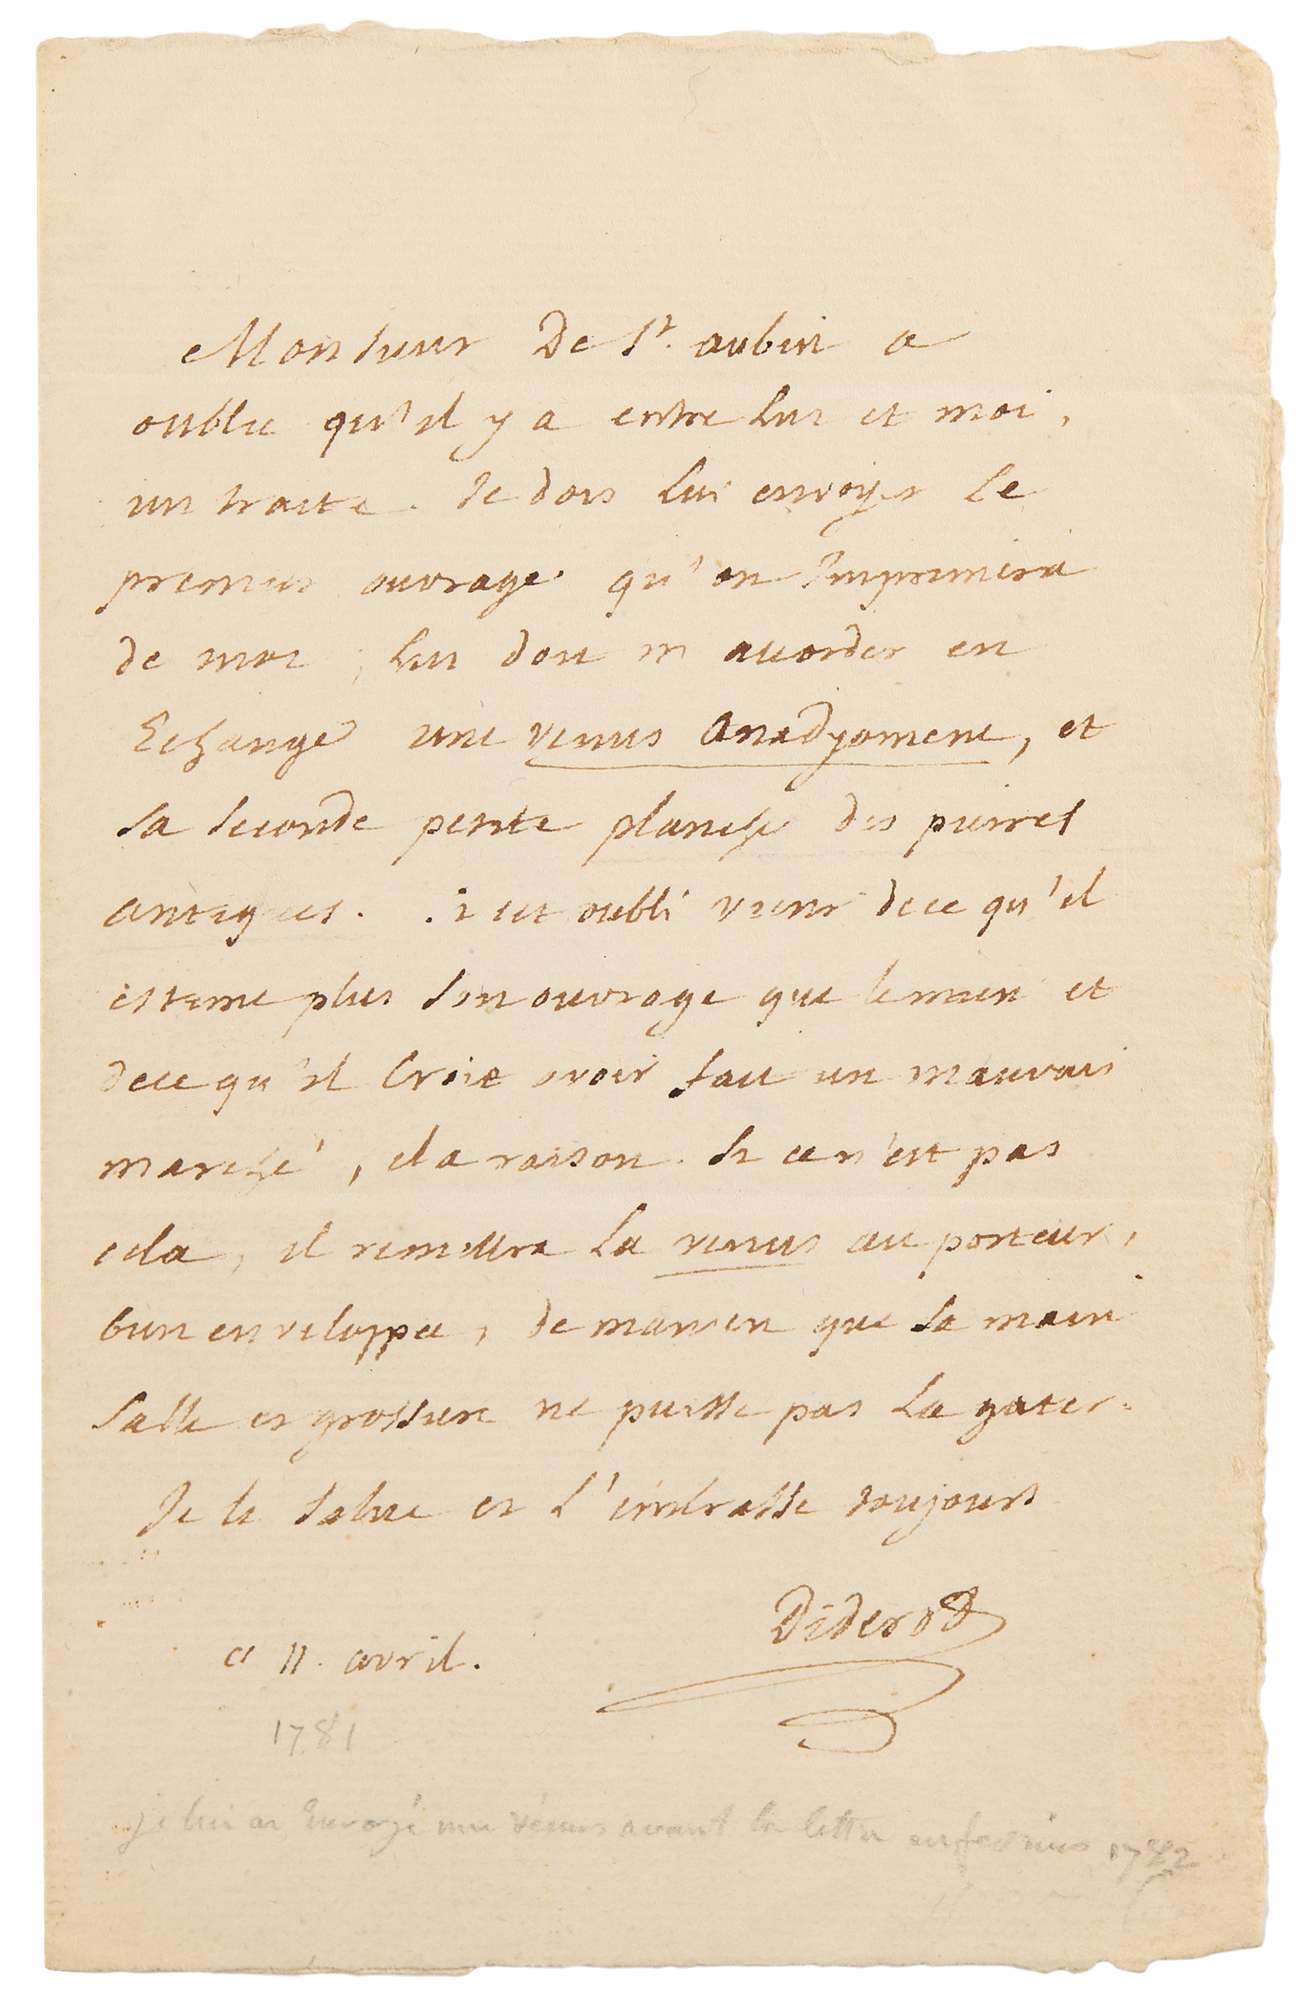 Monsieur De St. aubin a
oublié qu'il y a entre lui et moi,
un traite. Je dois lui envoyer le
premier ouvrage qu'on Imprimera
de moi ; lui doit m'accorder en
Echange une venus Anadyomene, et
sa seconde petite planche des pierres
antiques. si cet oubli vient de ce qu'il
estime plus son ouvrage que le mien et
de ce qu'il Croit avoir fait un mauvais
marché, il a raison. Si ce n'est pas
cela, il remettra la venus au porteur,
bien enveloppée, de maniere que sa main
salle et grossiere ne puisse pas la gater.
Je le salue et l'embrasse toujours
Diderot
a 11. avril.
1781
je lui ai Envoyé une vénus avant la lettre en 1782